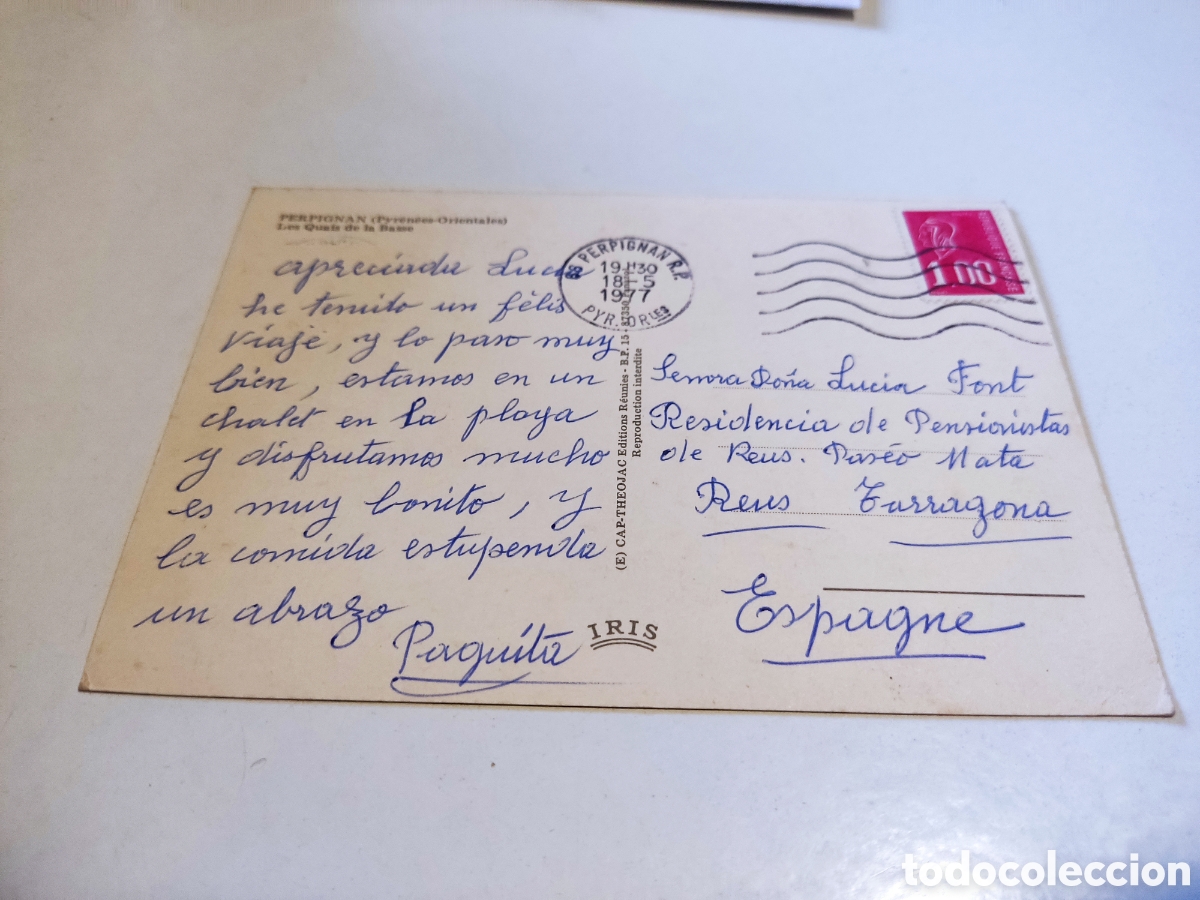 PERPIGNAN (Pyrénées-Orientales)
Les Quais de la Basse
apreciada Lucia
he tenido un félis
viaje, y lo paso muy
bien, estamos en un
chalet en la playa
y disfrutamos mucho
es muy bonito, y
la comida estupenda
un abrazo
Paquita
66 PERPIGNAN R.P.
19H30
18-5
1977
PYR. ORLES
1.00
(E) CAP-THEOJAC Editions Réunies - B.P. 15 - 87350
Reproduction interdite
IRIS
Senora Doña Lucia Font
Residencia de Pensionistas
de Reus. Paséo Mata
Reus Tarragona
Espagne
todocoleccion